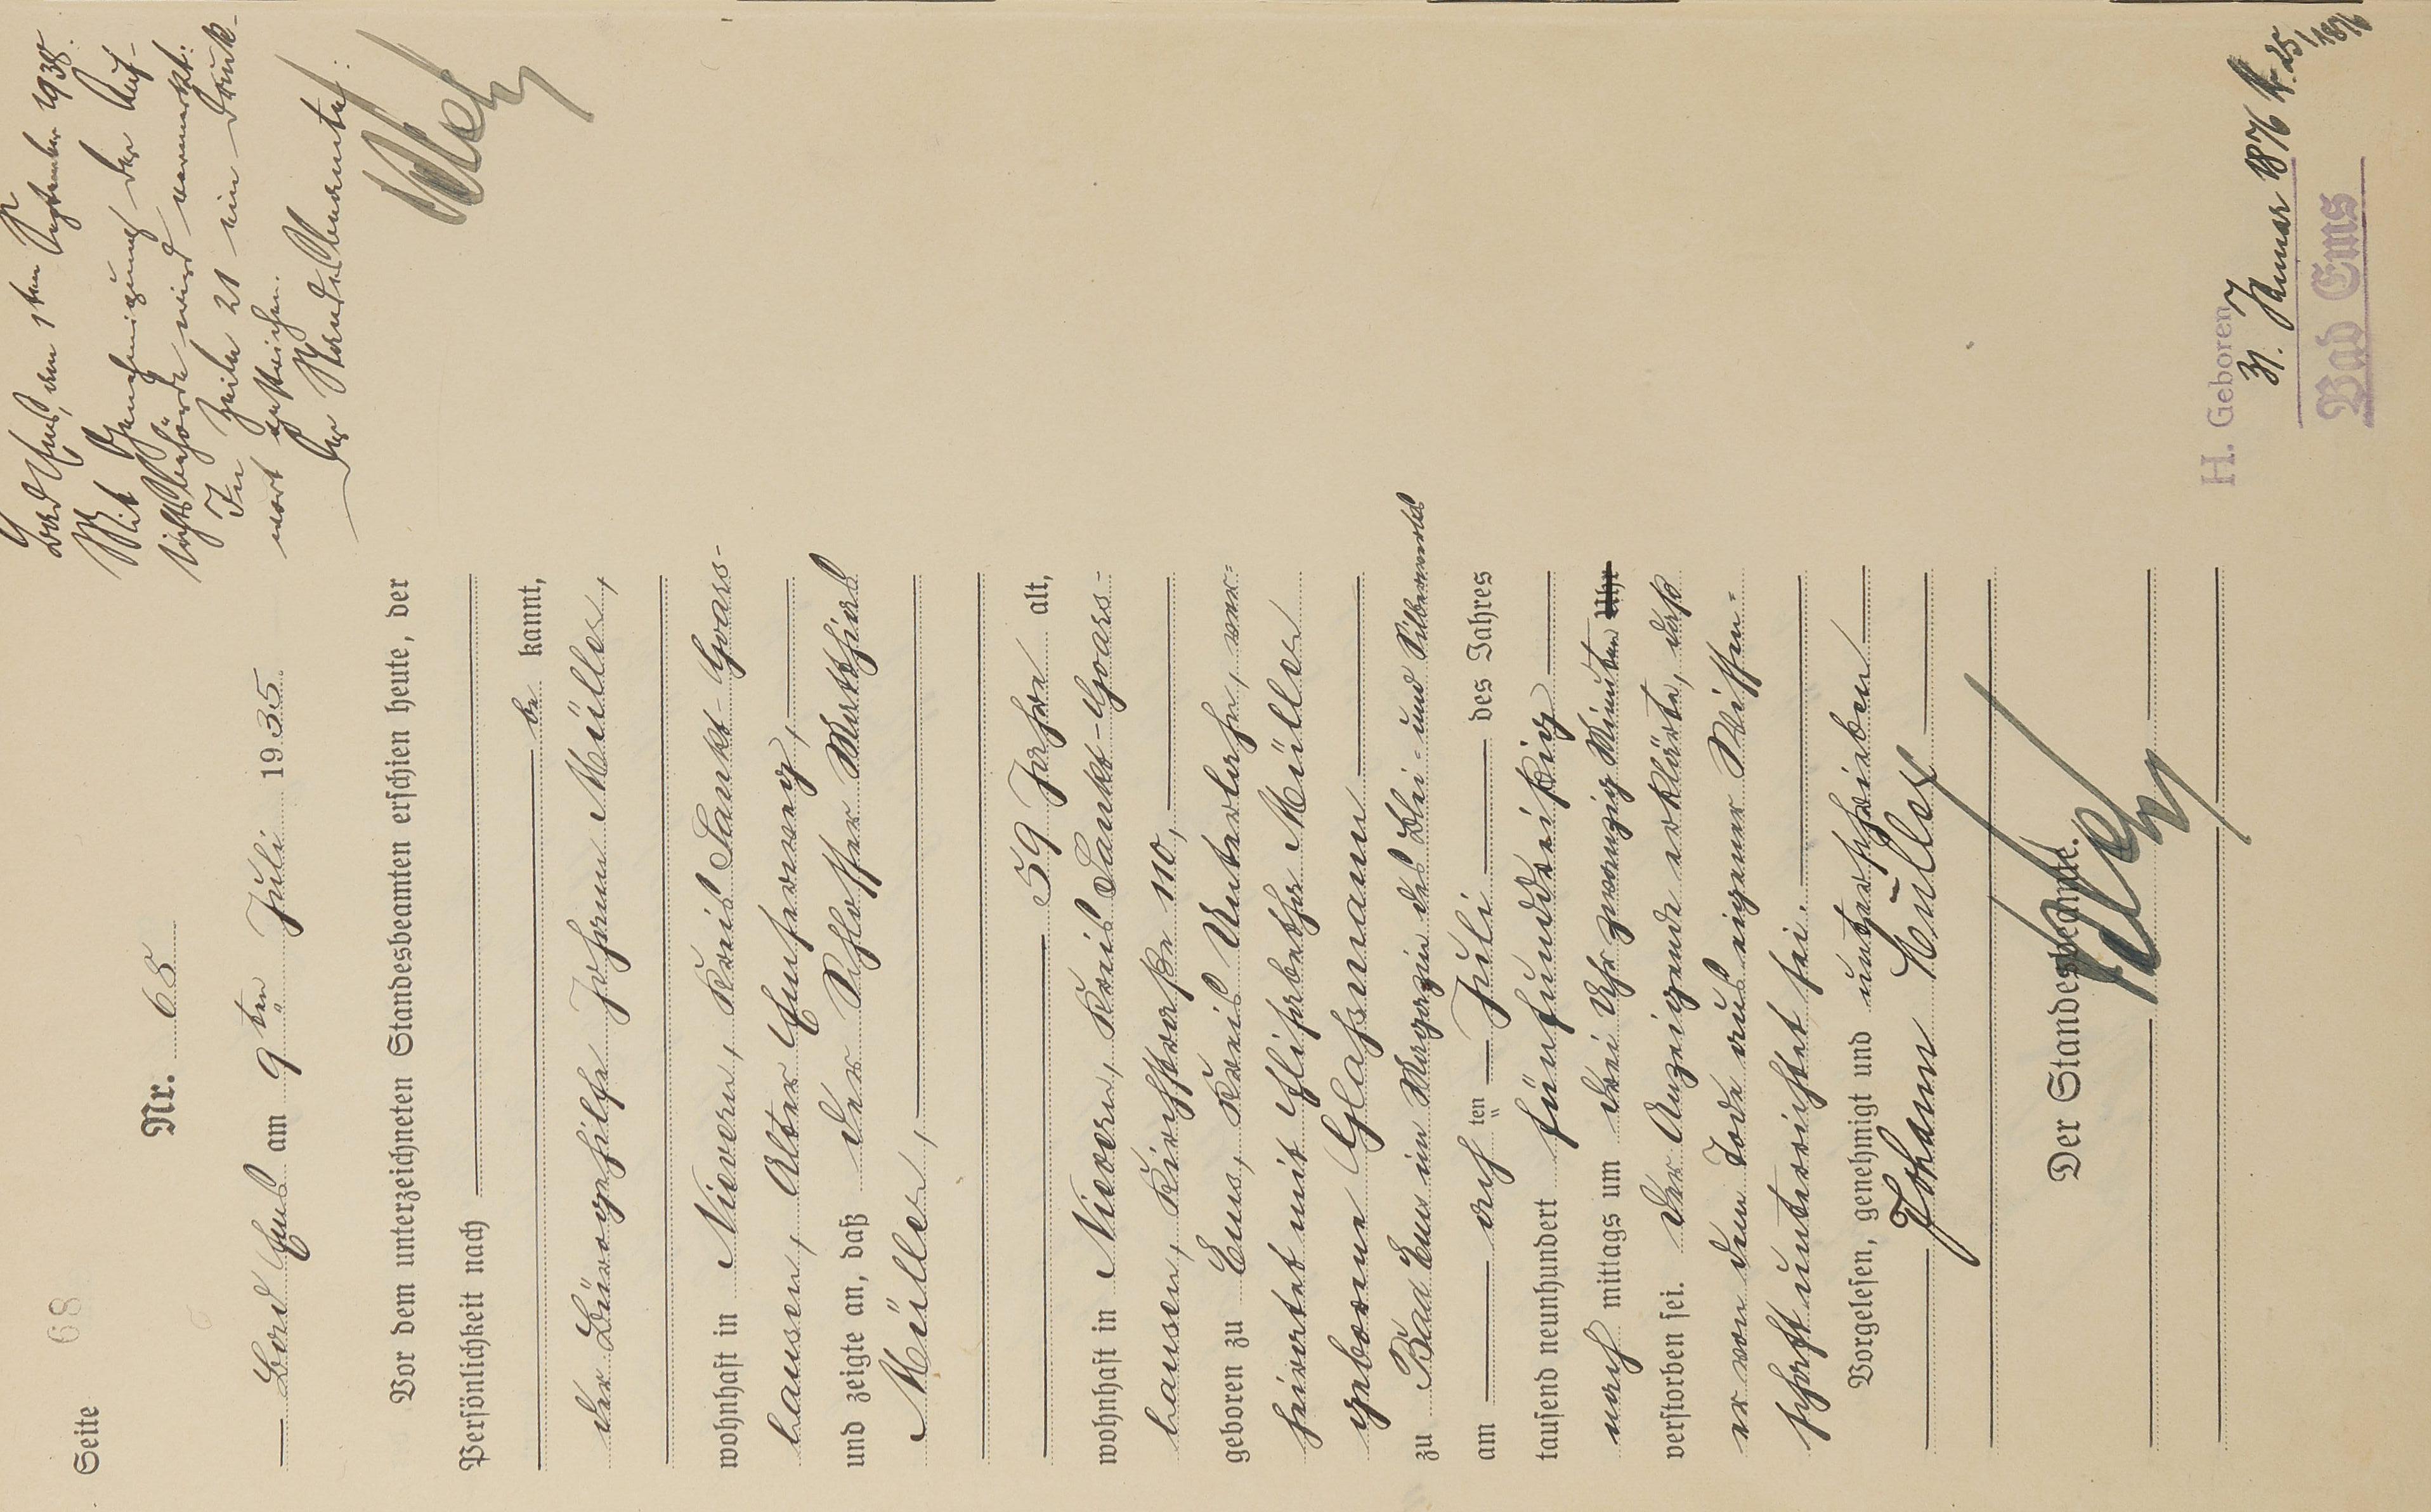 Seite 68
Nr. 68
Bad Ems am 9ten Juli 1935
Vor dem unterzeichneten Standesbeamten erschien heute, der
Persönlichkeit nach
be kannt,
der Bürogehilfe Johann Müller,
wohnhaft in Nievern, Kreis Sankt-Goars-
hausen, Alter Emserweg,
und zeigte an, daß der Schlosser Matthias
Müller,
59 Jahre alt,
wohnhaft in Nievern, Kreis Sankt-Goars-
hausen, Kirchstraße 110,
geboren zu Ems, Kreis Unterlahn, ver=
heiratet mit Elisabetha Müller
geborene Glasmann
zu Bad Ems im Magazin des Blei- und Silberwerks
am acht ten Juli des Jahres
tausend neunhundert fünfunddreißig
nach mittags um drei Uhr zwanzig Minuten Uhr
verstorben sei. Der Anzeigende erklärte, daß
er von dem Tode aus eigener Wissen=
schaft unterrichtet sei.
Vorgelesen, genehmigt und unterschrieben
Johann Müller
Der Standesbeamte.
Bad Ems, den 1ten September 1938.
Mit Genehmigung der Auf-
sichtsbehörde wird vermerkt:
In Zeile 21 ein Druck-
wort gestrichen.
Der Standesbeamte:
H. Geboren
31. Januar 1876 Nr. 25/1876
Bad Ems